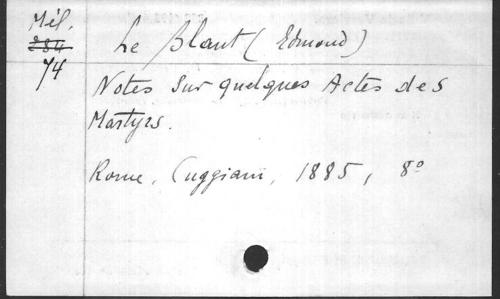 Mél.
284
74
Le Blant (Edmond)
Notes sur quelques Actes des
Martyrs.
Rome, Cuggiani, 1885, 8°